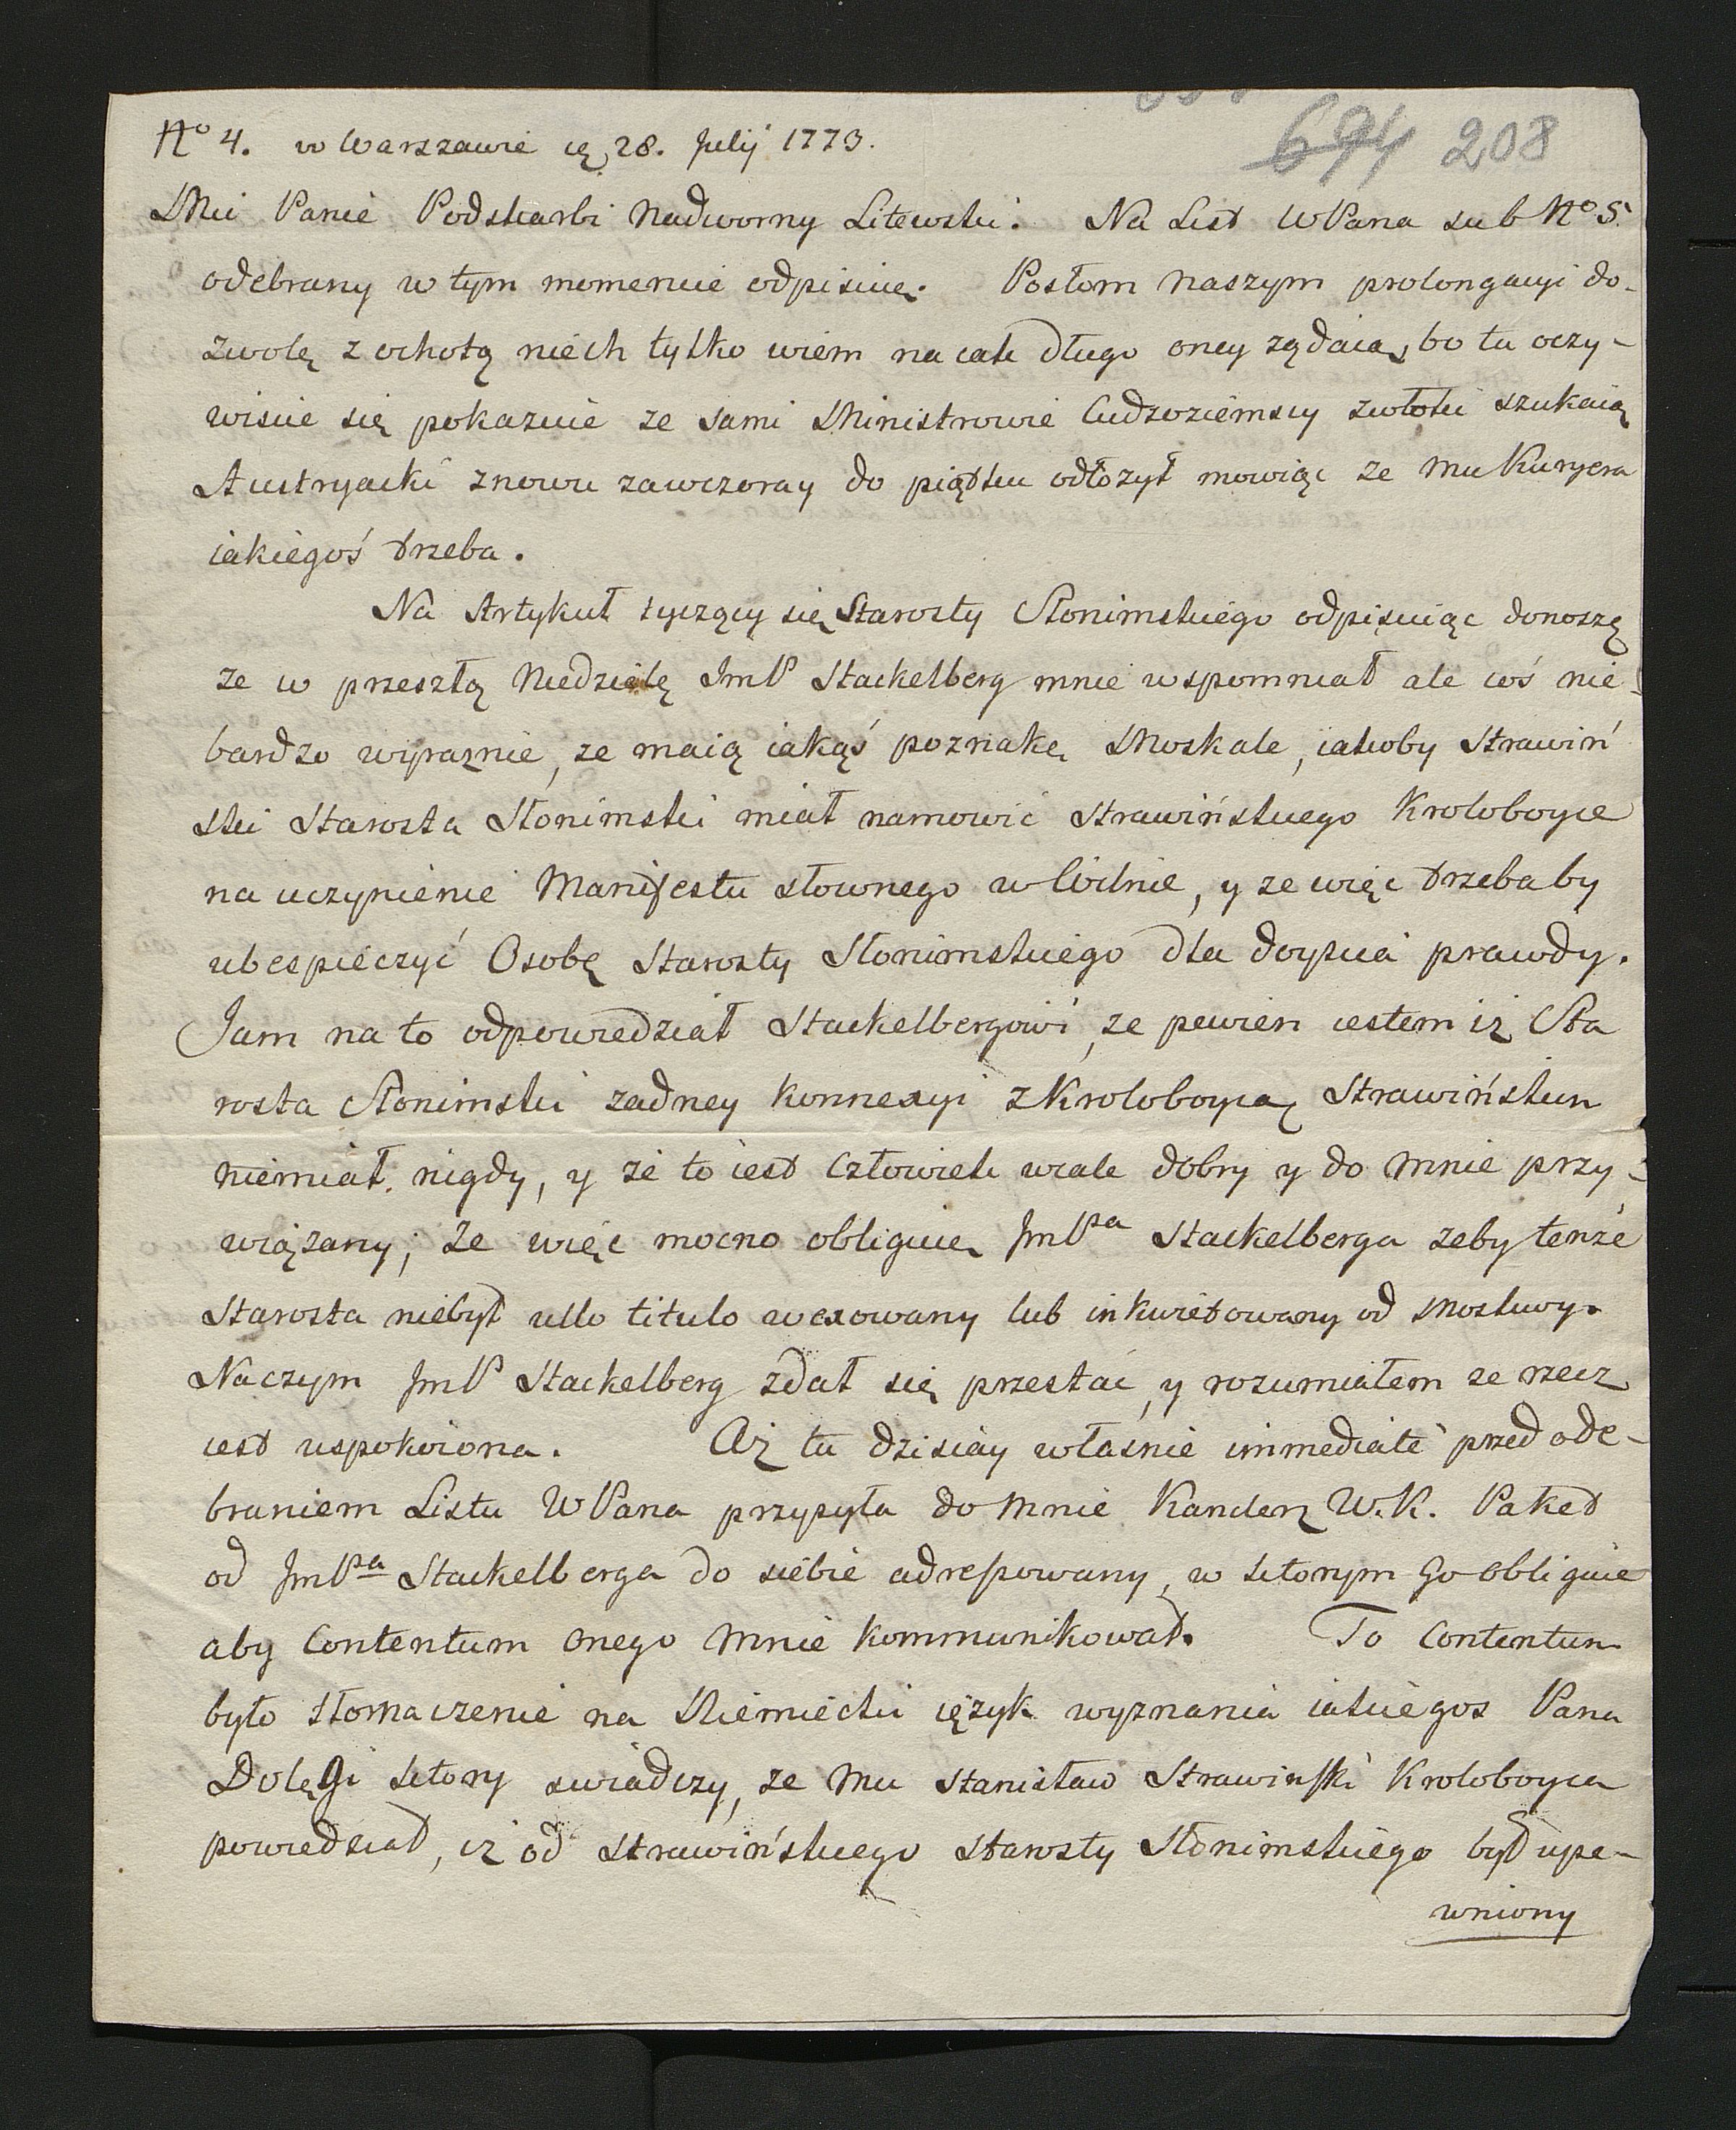 694 208
No 4. w Warszawie ię 28. Julij 1773.
Mci Panie Podskarbi Nadworny Litewski. Na List WPana sub No 5.
odebrany w tym momencie odpisuię. Posłom naszym prolongacyi do-
zwolę z ochotą niech tylko wiem na iak długo oney żądaią, bo tu oczy-
wiscie się pokazuie ze sami Ministrowie Cudzoziemscy zwłoki szukaią
Austryacki znowu zawczoray do piątku odłozył mowiąc ze mu Kuryera
iakiegoś trzeba.
Na Artykuł tyczący się Starosty Słonimskiego odpisuiąc donoszę
ze w przeszłą Niedzielę ImP Stackelberg mnie wspomniał ale coś nie-
bardzo wyraznie, ze maią iakąś poznakę Moskale, iakoby Strawiń
ski Starosta Słonimski miał namowić Strawińskiego Kroloboyce
na uczynienie Manifestu słownego w Wilnie, y ze więc trzebaby
ubespieczyć Osobę Starosty Słonimskiego dla doyscia prawdy.
Jam na to odpowiedział Stackelbergowi, ze pewien iestem iz Sta
rosta Słonimski zadney konnexyi z Kroloboycą Strawińskim
niemiał nigdy, y ze to iest Człowiek wcale dobry y do mnie przy-
wiązany; Ze więc mocno obliguię JmPa Stackelberga zeby tenze
Starosta niebył ullo titulo wexowany lub inkwietowany od Moskwy.
Naczym JmP Stackelberg zdał się przestać, y rozumiałem ze rzecz
iest uspokoiona. Aż tu dzisiay właśnie immediate przed ode-
braniem Listu WPana przysyła do mnie Kanclerz W.K. Paket
od JmPa Stackelberga do siebie adressowany, w ktorym Go obliguie
aby Contentum onego mnie kommunikował. To Contentum
było tłomaczenie na Niemiecki ięzyk wyznania iakiegos Pana
Dolęgi ktory swiadczy, ze mu Stanisław Strawinski Kroloboyca
powiedział, iz od Strawińskiego Starosty Słonimskiego był upe-
wniony